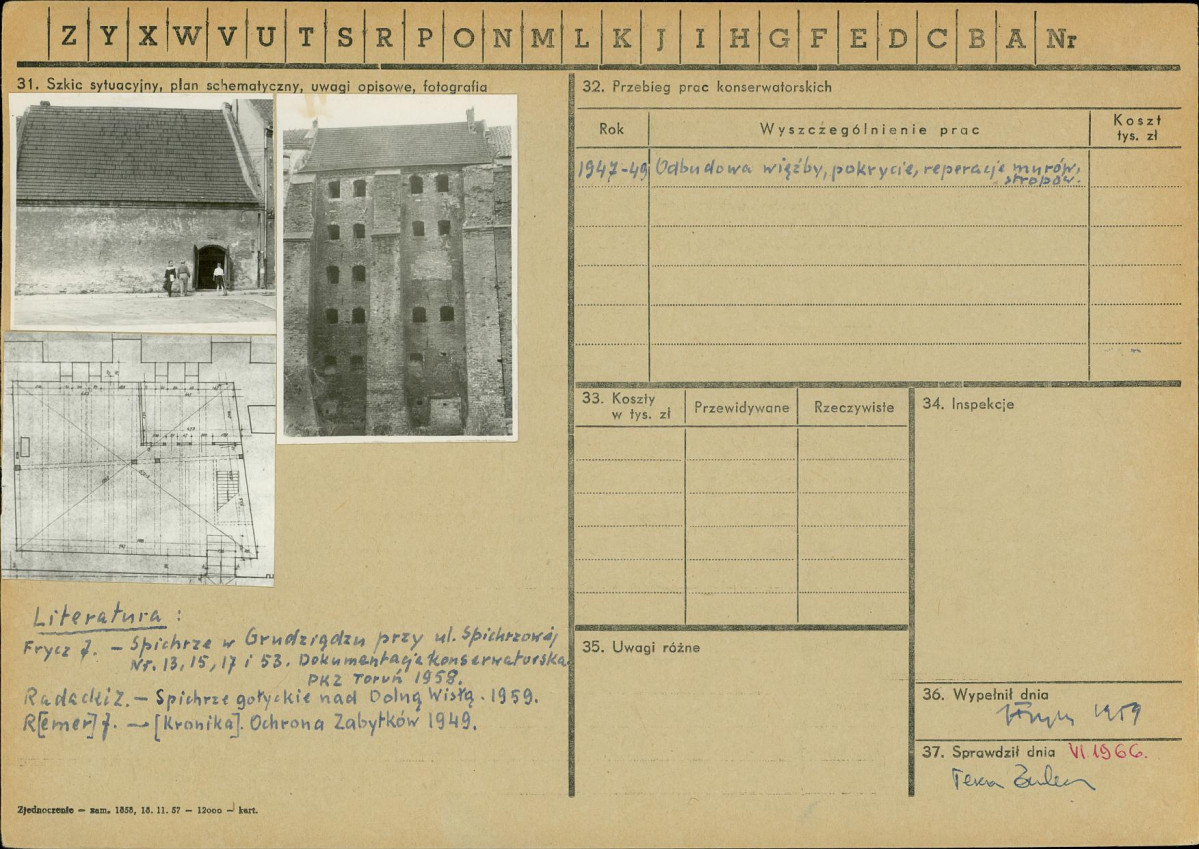 Z Y X W V U T S R P O N M L K J I H G F E D C B A Nr
31. Szkic sytuacyjny, plan schematyczny, uwagi opisowe, fotografia
Literatura :
Frycz J. – Spichrze w Grudziądzu przy ul. Spichrzowej
Nr. 13, 15, 17 i 53. Dokumentacja konserwatorska
PKZ Toruń 1958.
Radacki Z. – Spichrze gotyckie nad Dolną Wisłą. 1959.
R[emer] J. – [Kronika]. Ochrona Zabytków 1949.
Zjednoczenie – zam. 1858, 18. 11. 57 – 12000 – kart.
32. Przebieg prac konserwatorskich
Rok Wyszczególnienie prac Koszt
tys. zł
1947-49 Odbudowa więźby, pokrycie, reperacje murów,
stropów.
33. Koszty
w tys. zł Przewidywane Rzeczywiste
34. Inspekcje
35. Uwagi różne
36. Wypełnił dnia
1959
37. Sprawdził dnia VI.1966.